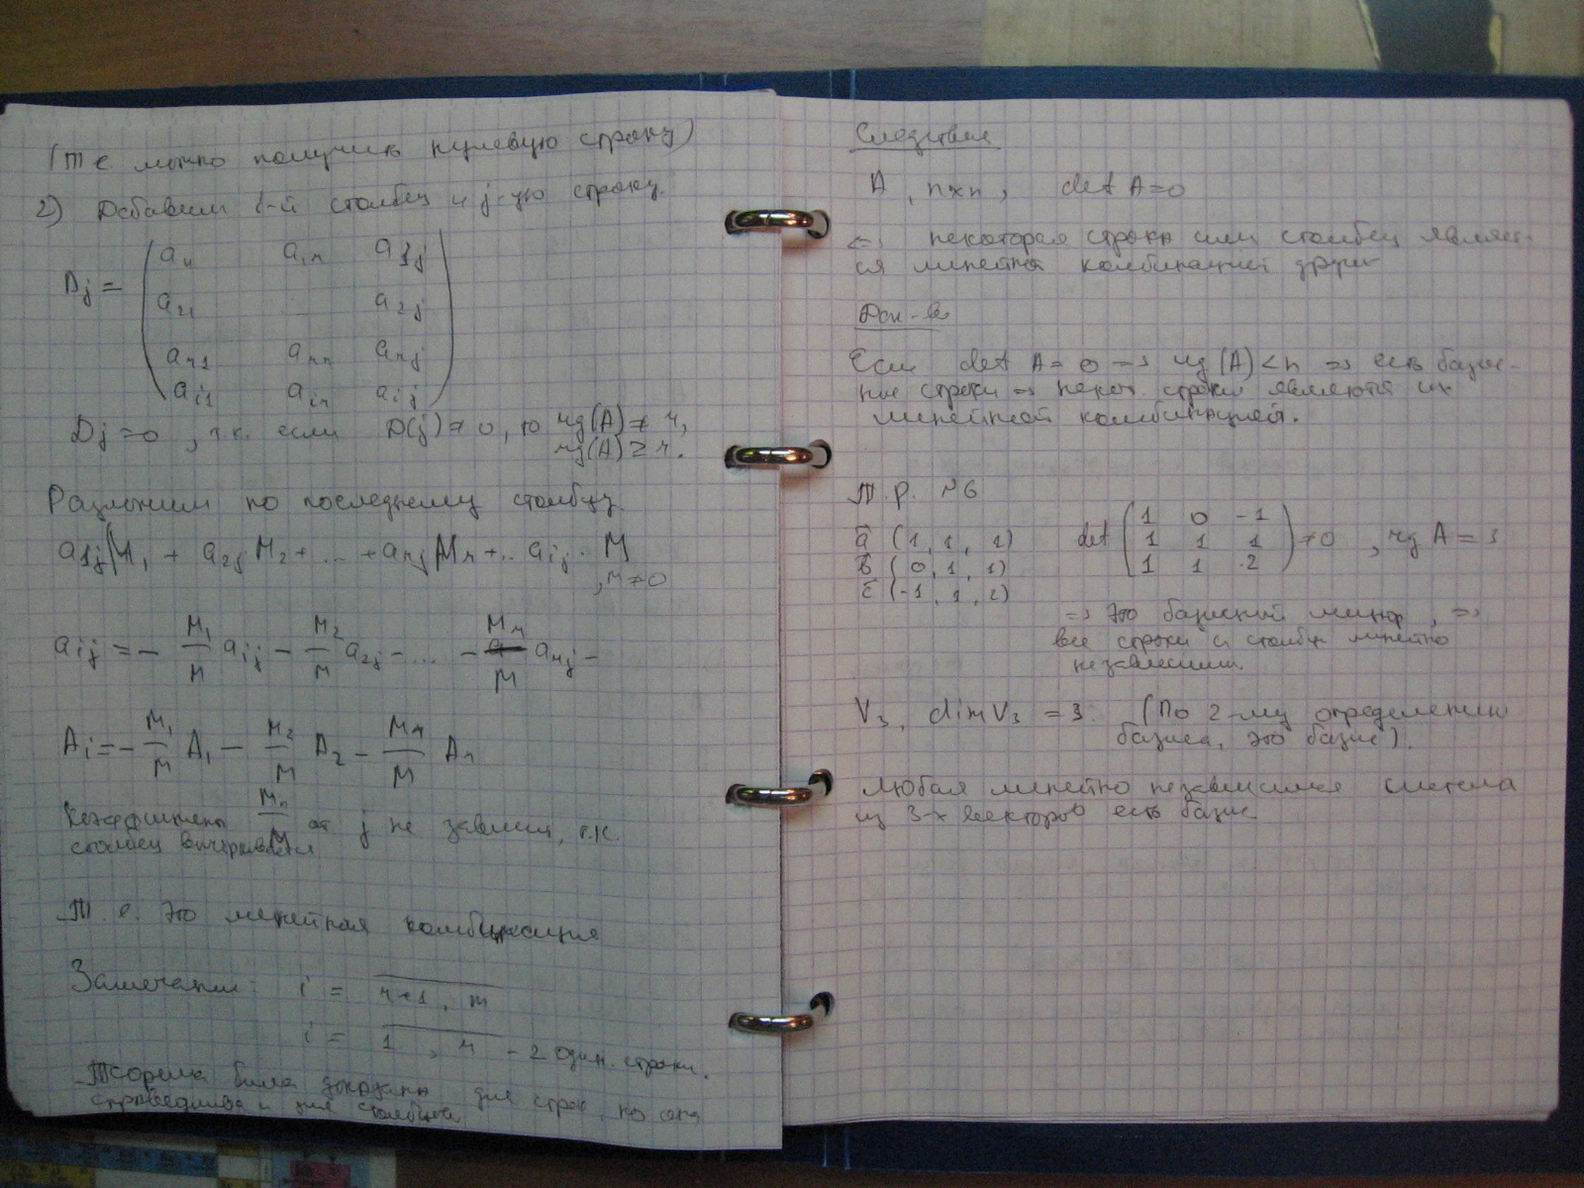 (т е можно получить нулевую строку)
2) Добавим j-й столбец и j-ую строку.
Dj = ( a11 a1r a1j
a21 a2j
ar1 arr arj
ai1 air aij )
Dj = 0, т.к. если D(j) ≠ 0, то rg(A) ≠ r,
rg(A) ≥ r.
Разложим по последнему столбцу
a1j M1 + a2j M2 + ... + arj Mr + .. aij · M
, M ≠ 0
aij = - M1/M aij - M2/M a2j - ... - Mr/M arj -
Ai = - M1/M A1 - M2/M A2 - Mr/M Ar
Коэффициенты Mr/M от j не зависят, т.к.
столбец вычеркивается
Т. е. это линейная комбинация
Замечание: i = r+1, m
i = 1, r - 2 один. строки.
Теорема была доказана для строк, но она
справедлива и для столбцов
Следствия
A, n×n, det A = 0
<=> некоторая строка или столбец являет-
ся линейной комбинацией других
Док-во
Если det A = 0 => rg(A) < n => есть базис-
ные строки => некот. строки являются их
линейной комбинацией.
Т. р. №6
a (1, 1, 1)
b (0, 1, 1)
c (-1, 1, 2)
det ( 1 0 -1
1 1 1
1 1 2 ) ≠ 0, rg A = 3
=> это базисный минор, =>
все строки и столбцы линейно
независимы.
V3, dim V3 = 3. (По 2-му определению
базиса, это базис).
Любая линейно независимая система
из 3-х векторов есть базис